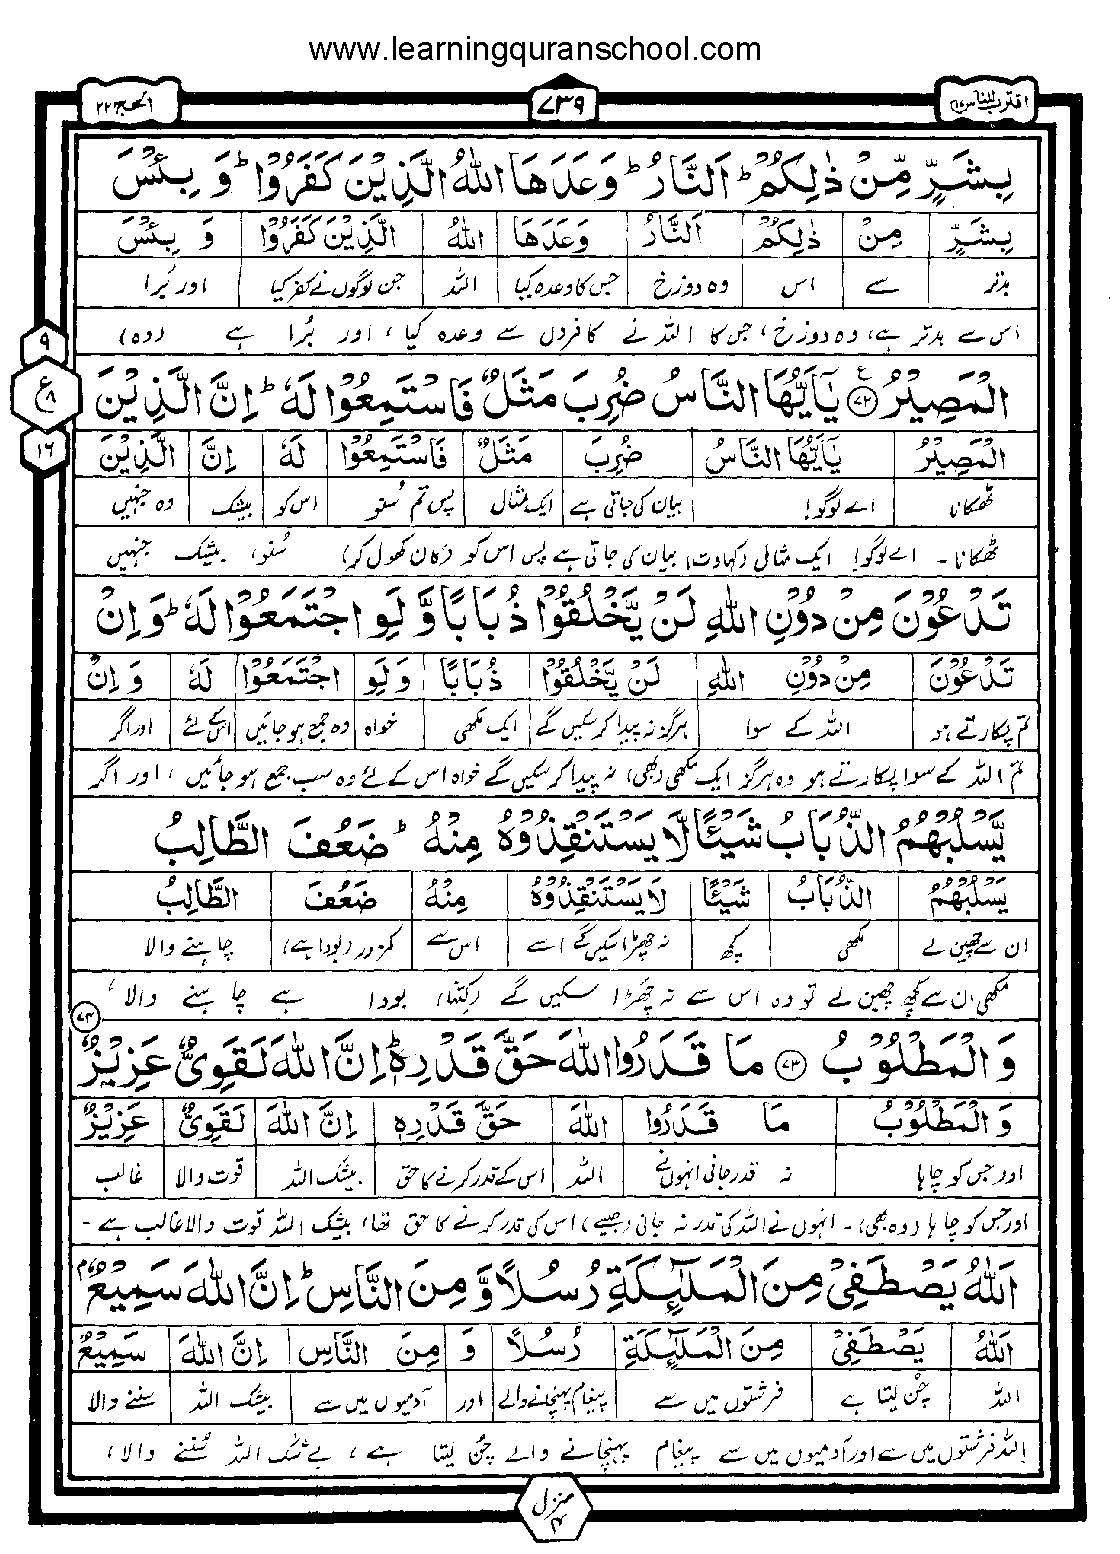 www.learningquranschool.com
اقترب للناس ۱۷
۷۳۹
الحج ۲۲
بِشَرٍّ مِّنْ ذٰلِكُمْ ؕ اَلنَّارُ ؕ وَعَدَهَا اللّٰهُ الَّذِيْنَ كَفَرُوْا ؕ وَ بِئْسَ
بِشَرٍّ مِنْ ذٰلِكُمْ اَلنَّارُ وَعَدَهَا اللّٰهُ الَّذِيْنَ كَفَرُوْا وَ بِئْسَ
بدتر سے اس وہ دوزخ جس کا وعدہ کیا اللہ جن لوگوں نے کفر کیا اور بُرا
اس سے بدتر ہے، وہ دوزخ، جس کا اللہ نے کافروں سے وعدہ کیا، اور بُرا ہے (وہ)
۹
ع ۸
۱۶
الْمَصِيْرُ ۷۲ ع يٰۤاَيُّهَا النَّاسُ ضُرِبَ مَثَلٌ فَاسْتَمِعُوْا لَهٗ ؕ اِنَّ الَّذِيْنَ
الْمَصِيْرُ يٰۤاَيُّهَا النَّاسُ ضُرِبَ مَثَلٌ فَاسْتَمِعُوْا لَهٗ اِنَّ الَّذِيْنَ
ٹھکانا اے لوگو! بیان کی جاتی ہے ایک مثال پس تم سُنو اس کو بیشک وہ جنہیں
ٹھکانا۔ اے لوگو! ایک مثال (کہاوت) بیان کی جاتی ہے پس اس کو (کان کھول کر) سُنو، بیشک جنہیں
تَدْعُوْنَ مِنْ دُوْنِ اللّٰهِ لَنْ يَّخْلُقُوْا ذُبَابًا وَّ لَوِ اجْتَمَعُوْا لَهٗ ؕ وَ اِنْ
تَدْعُوْنَ مِنْ دُوْنِ اللّٰهِ لَنْ يَّخْلُقُوْا ذُبَابًا وَ لَوِ اجْتَمَعُوْا لَهٗ وَ اِنْ
تم پکارتے ہو اللہ کے سوا ہرگز نہ پیدا کرسکیں گے ایک مکھی خواہ وہ جمع ہوجائیں اس کے لئے اور اگر
تم اللہ کے سوا پکارتے ہو وہ ہرگز ایک مکھی (بھی) نہ پیدا کرسکیں گے خواہ اس کے لئے وہ سب جمع ہو جائیں، اور اگر
يَّسْلُبْهُمُ الذُّبَابُ شَيْـًٔا لَّا يَسْتَنْقِذُوْهُ مِنْهُ ؕ ضَعُفَ الطَّالِبُ
يَسْلُبْهُمُ الذُّبَابُ شَيْـًٔا لَا يَسْتَنْقِذُوْهُ مِنْهُ ضَعُفَ الطَّالِبُ
ان سے چھین لے مکھی کچھ نہ چھڑا سکیں گے اسے اس سے کمزور (بودا ہے) چاہنے والا
مکھی ان سے کچھ چھین لے تو وہ اس سے نہ چھڑا سکیں گے (کتنا) بودا ہے چاہنے والا،
وَ الْمَطْلُوْبُ ۷۳ مَا قَدَرُوا اللّٰهَ حَقَّ قَدْرِهٖ ؕ اِنَّ اللّٰهَ لَقَوِيٌّ عَزِيْزٌ ۷۴
وَ الْمَطْلُوْبُ مَا قَدَرُوا اللّٰهَ حَقَّ قَدْرِهٖ اِنَّ اللّٰهَ لَقَوِيٌّ عَزِيْزٌ
اور جس کو چاہا نہ قدر جانی انہوں نے اللہ اس کے قدر کرنے کا حق بیشک اللہ قوت والا غالب
اور جس کو چاہا (وہ بھی)۔ انہوں نے اللہ کی قدر نہ جانی (جیسے) اس کی قدر کرنے کا حق تھا، بیشک اللہ قوت والا غالب ہے۔
اَللّٰهُ يَصْطَفِيْ مِنَ الْمَلٰٓئِكَةِ رُسُلًا وَّ مِنَ النَّاسِ ؕ اِنَّ اللّٰهَ سَمِيْعٌۢ
اَللّٰهُ يَصْطَفِيْ مِنَ الْمَلٰٓئِكَةِ رُسُلًا وَ مِنَ النَّاسِ اِنَّ اللّٰهَ سَمِيْعٌ
اللہ چُن لیتا ہے فرشتوں میں سے پیغام پہنچانے والے اور آدمیوں میں سے بیشک اللہ سننے والا
اللہ فرشتوں میں سے اور آدمیوں میں سے پیغام پہنچانے والے چُن لیتا ہے، بے شک اللہ سُننے والا،
منزل ۴